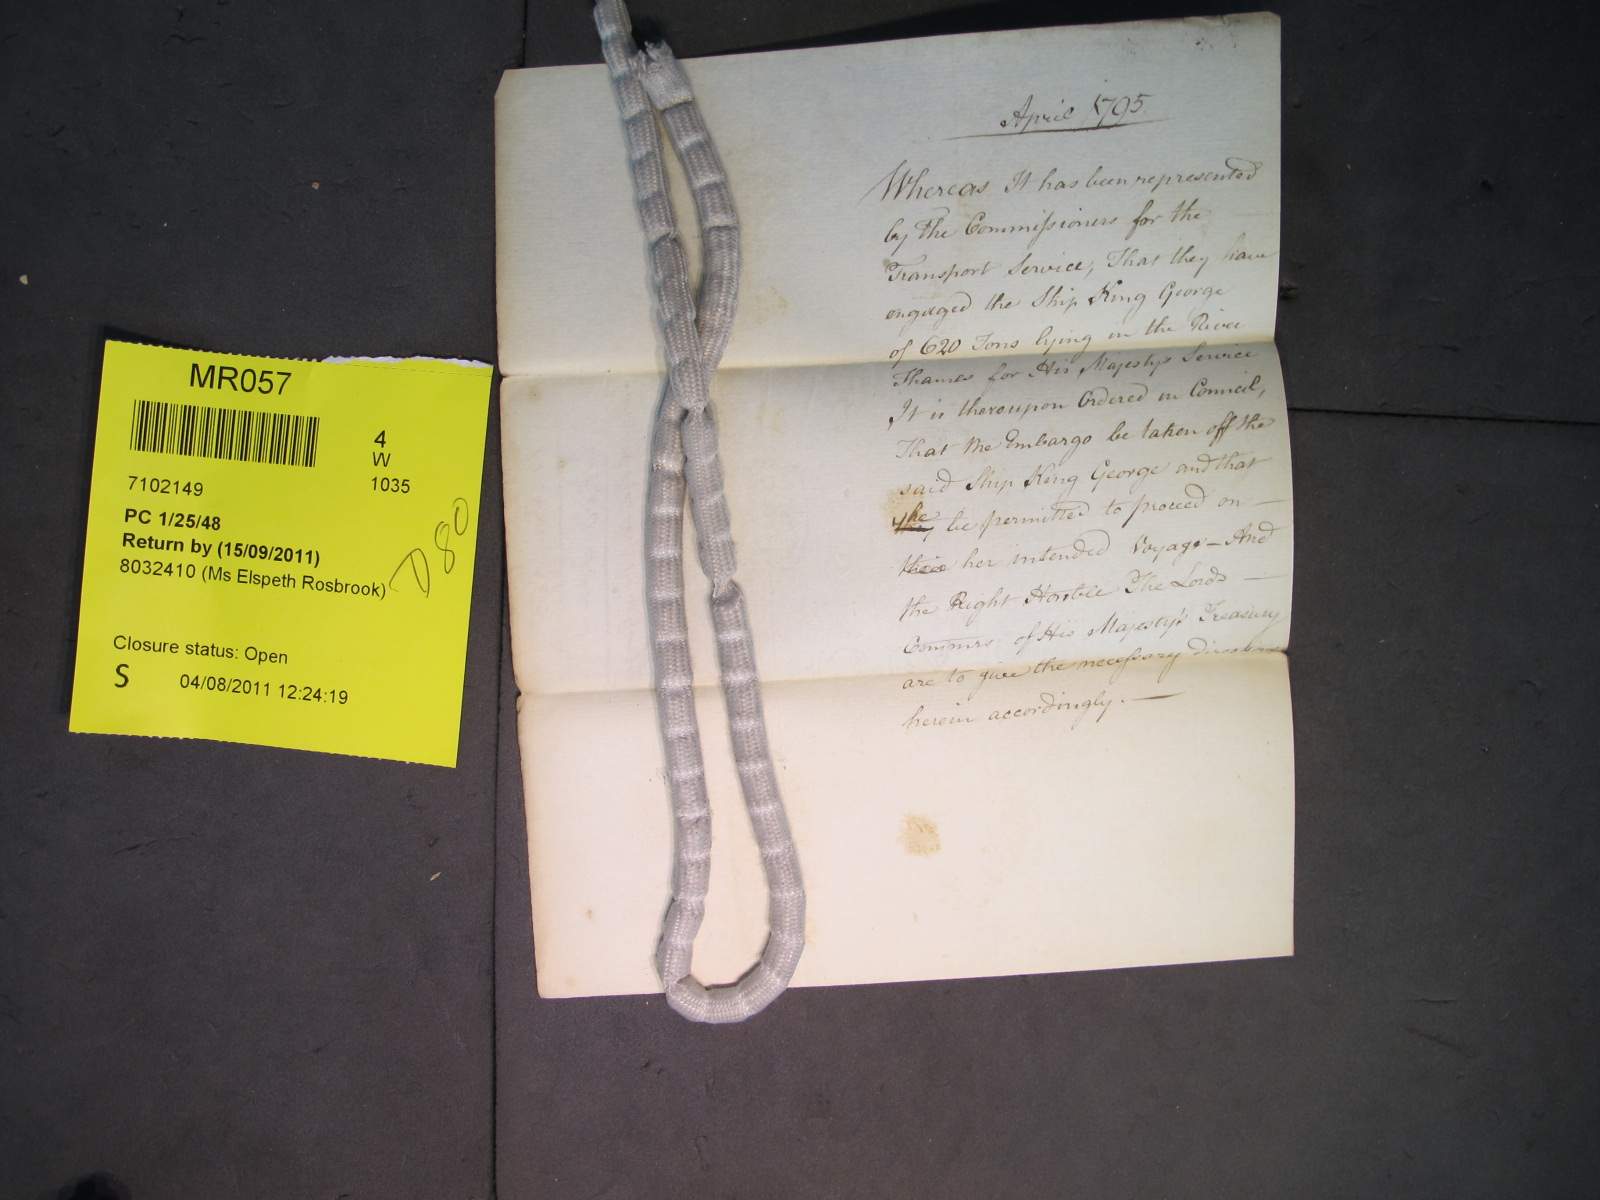 MR057
4
W
7102149 1035
PC 1/25/48
Return by (15/09/2011)
8032410 (Ms Elspeth Rosbrook)
D80
Closure status: Open
S 04/08/2011 12:24:19
April 1795.
Whereas It has been represented
by the Commissioners for the
Transport Service, That they have
engaged the Ship King George
of 620 Tons lying in the River
Thames for His Majestys Service
It is thereupon Ordered in Council,
That the Embargo be taken off the
said Ship King George and that
she be permitted to proceed on —
their her intended Voyage — And
the Right Honble The Lords —
Commrs. of His Majesty's Treasury
are to give the necessary directions
herein accordingly. —